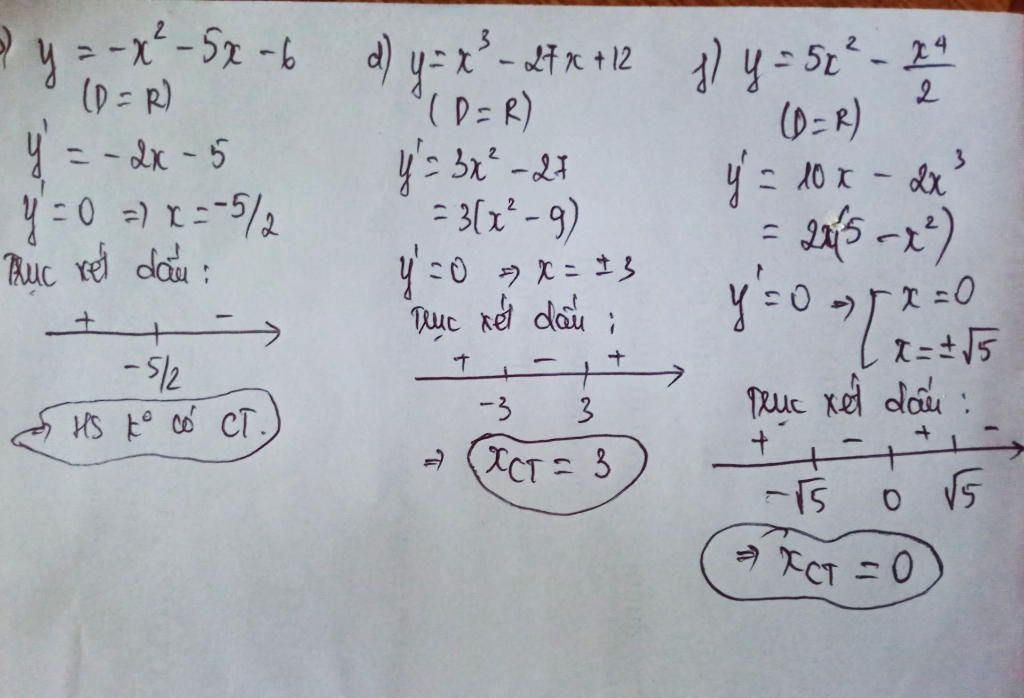 ) y = -x² - 5x - 6
(D = R)
y' = -2x - 5
y' = 0 => x = -5/2
Trục xét dấu :
+ -
-5/2
=> HS k° có CT.
d) y = x³ - 27x + 12
(D = R)
y' = 3x² - 27
= 3(x² - 9)
y' = 0 => x = ±3
Trục xét dấu :
+ - +
-3 3
=> x_CT = 3
f) y = 5x² - x⁴/2
(D = R)
y' = 10x - 2x³
= 2x(5 - x²)
y' = 0 => [ x = 0
x = ±√5
Trục xét dấu :
+ - + -
-√5 0 √5
=> x_CT = 0